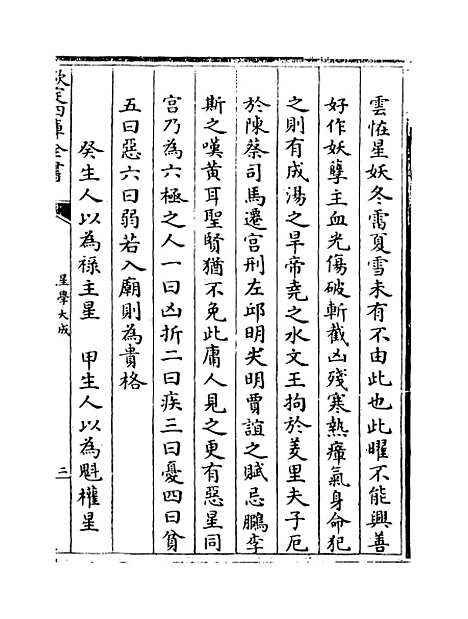 雲怪星妖冬雷夏雪未有不由此也此曜不能興善
好作妖孽主血光傷破斬截凶殘寒熱瘴氣身命犯
之則有成湯之旱帝堯之水文王拘於羑里夫子厄
於陳蔡司馬遷宫刑左邱明失明賈誼之賦忌鵩李
斯之嘆黄耳聖賢猶不免此庸人見之更有惡星同
宫乃為六極之人一曰凶折二曰疾三曰憂四曰貧
五曰惡六曰弱若入廟則為貴格
癸生人以為祿主星　甲生人以為魁權星
欽定四庫全書
星學大成
三